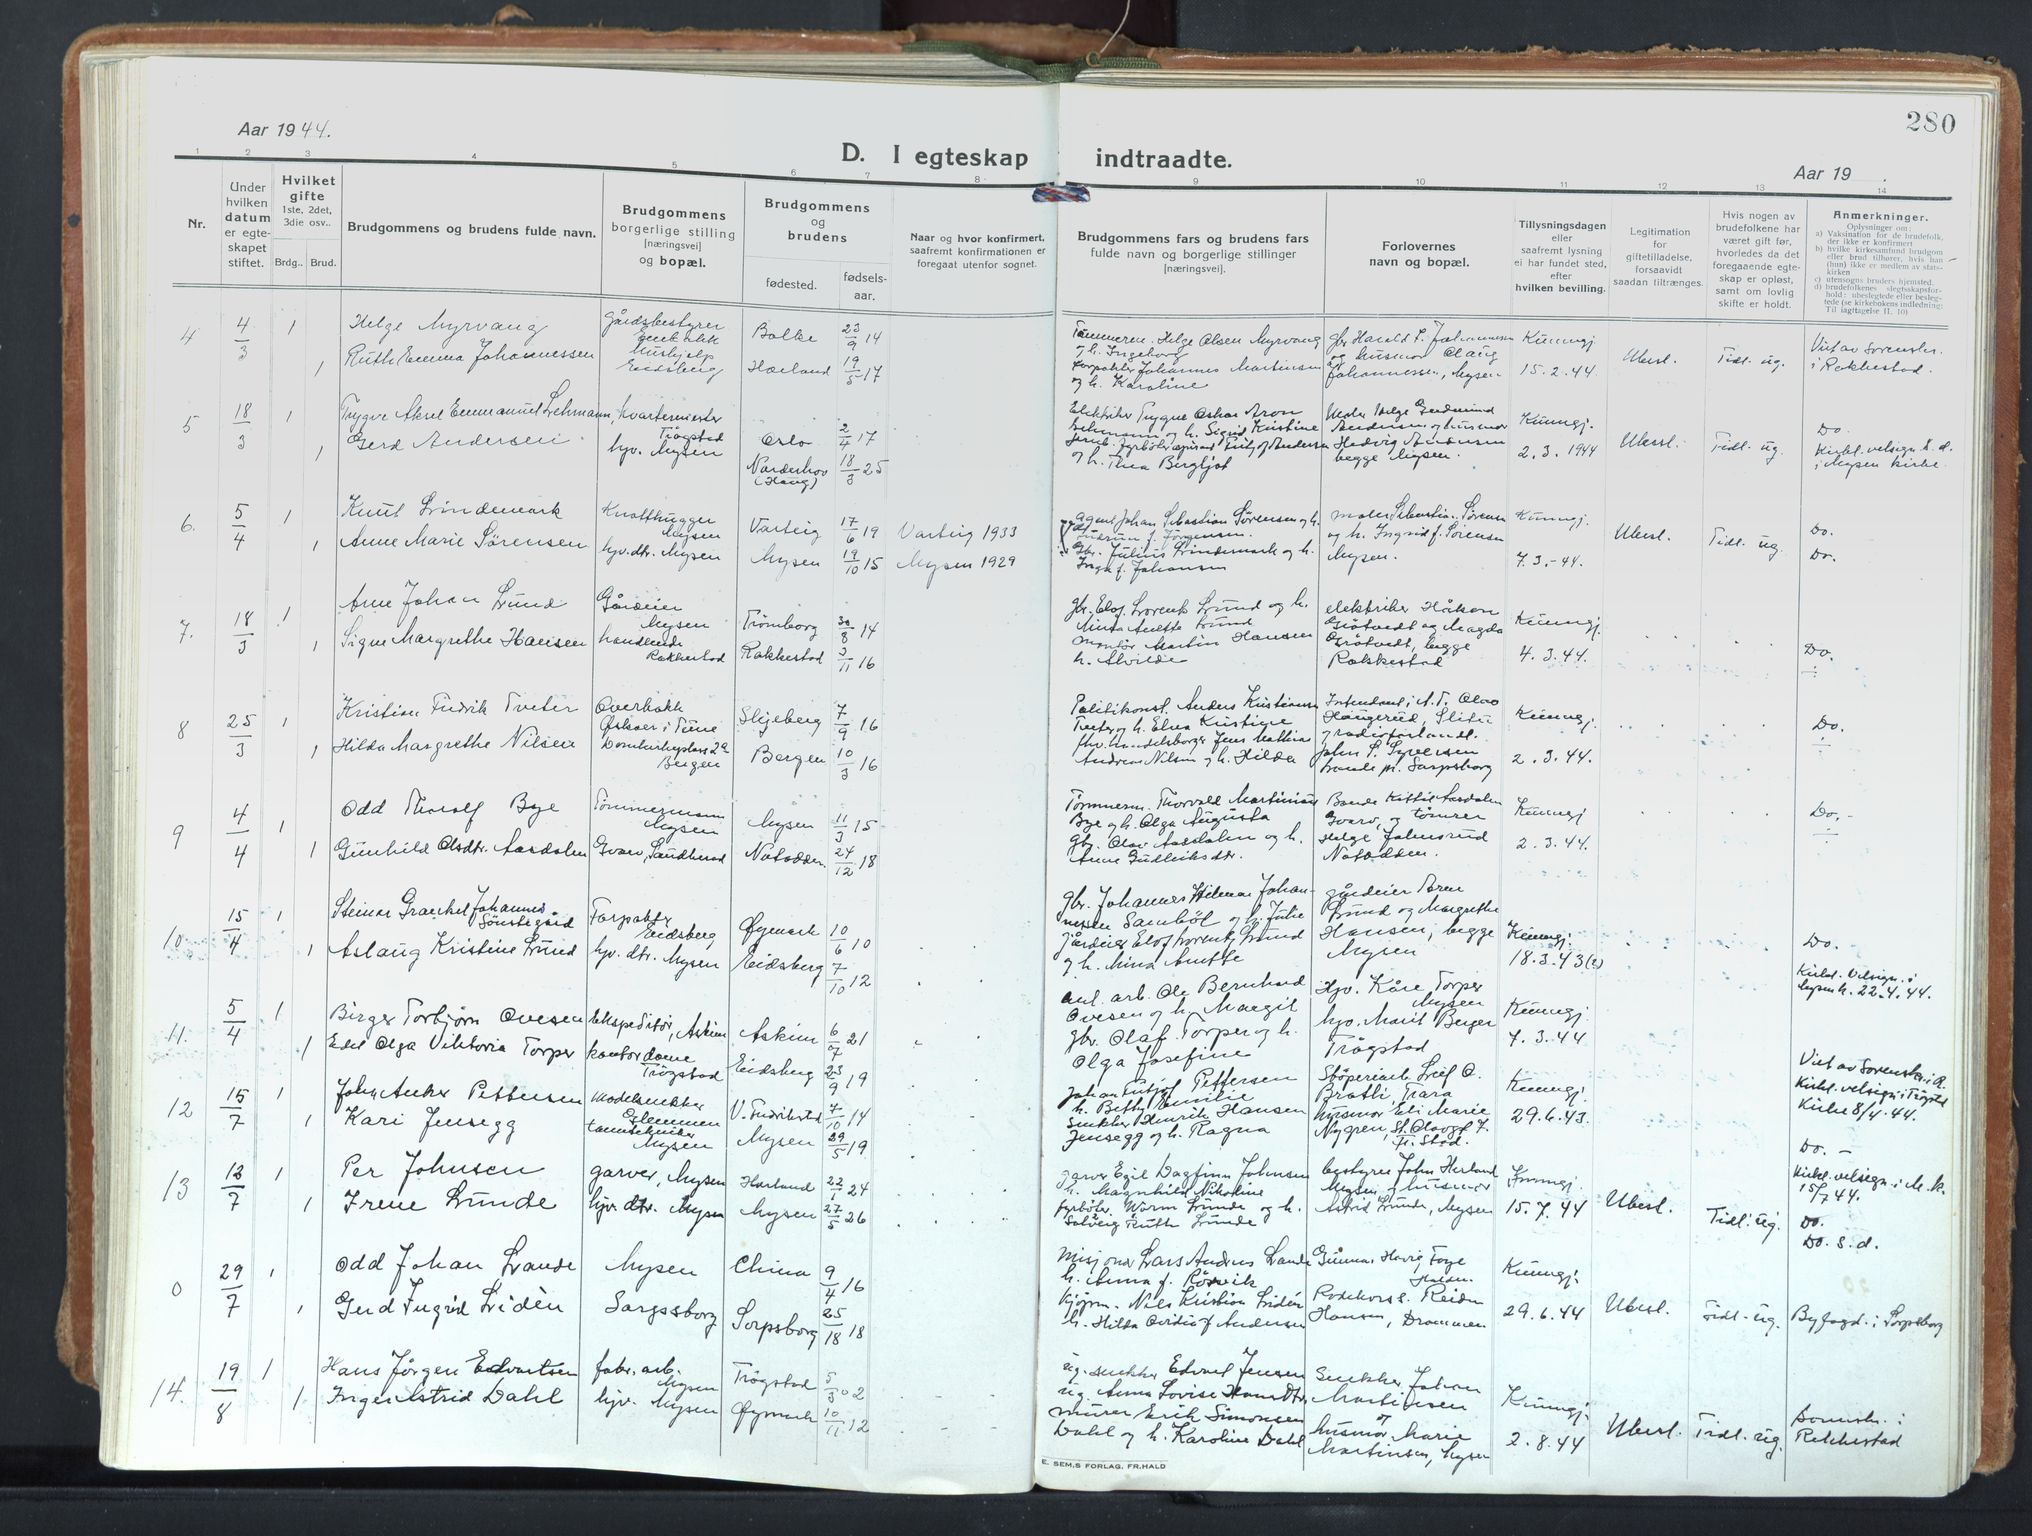 Aar 1944.
D. I egteskap indtraadte.
Aar 19 .
280
1 2 3 4 5 6 7 8 9 10 11 12 13 14
Nr.
Under hvilken datum er egteskapet stiftet.
Hvilket gifte 1ste, 2det, 3die osv..
Brdg.. Brud.
Brudgommens og brudens fulde navn.
Brudgommens borgerlige stilling [næringsvei] og bopæl.
Brudgommens og brudens
fødested.
fødsels-aar.
Naar og hvor konfirmert, saafremt konfirmationen er foregaat utenfor sognet.
Brudgommens fars og brudens fars fulde navn og borgerlige stillinger [næringsvei].
Forlovernes navn og bopæl.
Tillysningsdagen eller saafremt lysning ei har fundet sted, efter hvilken bevilling.
Legitimation for giftetilladelse, forsaavidt saadan tiltrænges.
Hvis nogen av brudefolkene har været gift før, hvorledes da det foregaaende egteskap er opløst, samt om lovlig skifte er holdt.
Anmerkninger.
Oplysninger om:
a) Vaksination for de brudefolk, der ikke er konfirmert
b) hvilke kirkesamfund brudgom eller brud tilhører, hvis han (hun) ikke er medlem av statskirken
c) utensogns bruders hjemsted.
d) brudefolkenes slegtsskapsforhold: ubeslegtede eller beslegtede (se kirkebokens indledning: Til iagttagelse II. 10)
4 4/3 1 Helge Myrvang Gårdsbestyrer Bolke 23/9 14
1 Ruth Emma Johannessen Hushjelp Eidsberg Hærland 19/5 17
Tømmerm. Helge Olsen Myrvang og h. Ingeborg
Forpakter Johannes Martinsen og h. Karoline
Johannessen, Mysen
Kunngj. 15.2.44. Ubesl. Tidl. ug. i Rakkestad.
5 18/3 1 Trygve Aksel Emmanuel Lehmann, kvartermester Trøgstad Oslo 2/4 17
1 Gerd Andersen hjv. Mysen Norderhov (Haug) 18/3 25
Elektriker Trygve Oskar Aron Lehmann og h. Sigrid Kristine
og h. Thea Bergljot
begge Mysen.
Kunngj. 2.3.1944 Ubesl. Tidl. ug. Do.
Kirkl. velsign. s. d. i Mysen kirke.
6. 5/4 1 Knut Lindemark Knotthugger Mysen Varteig 17/6 19 Varteig 1933
1 Anne Marie Sørensen hjv. dtr. Mysen Mysen 19/10 15 Mysen 1929
Agent Johan Sebastian Sørensen og h. Gudrun f. Jørgensen.
Gbr. Julius Lindemark og h. Inga f. Johansen
maler Sebastian Sørensen og h. Ingrid f. Sørensen Mysen.
Kunngj. 7.3.-44. Ubesl. Tidl. ug. Do. Do.
7. 18/3 1 Arne Johan Lund Gårdeier Mysen Trømborg 30/8 14
1 Signe Margrethe Hansen handlende Rakkestad Rakkestad 3/11 16
Gbr. Elof Lorentz Lund og h. Mina Anette Lund
Montør Martin Hansen h. Alvilde
elektriker Håkon Grøtvedt og Magda Grøtvedt, begge Rakkestad
Kunngj. 4.3.44. Do.
8 25/3 1 Kristian Fredrik Tveter Overkokk Skjeberg 7/9 16
1 Hilda Margrethe Nilsen Bergen Bergen 10/3 16
Politikonst. Anders Kristiansen Tveter og h. Elna Kristine
Andreas Nilsen og h. Hilda
John S. Syversen begge pr. Sarpsborg
Kunngj. 2.3.44. Do.
9 4/4 1 Odd Thorolf Bye Tømmermann Mysen Mysen 11/3 15
1 Gunhild Olsdtr. Aasdalen Gvarv, Sandherad Notodden 24/12 18
Tømmerm. Thorvald Martinius Bye og h. Olga Augusta
Gbr. Olav Aasdalen og h. Anne Gudleiksdtr.
Bonde Kittil Aasdalen Gvarv, og tømrer Helge Jahnsrud Notodden.
Kunngj. 2.3.44. Do.
10 15/4 1 Steinar Johannes Sønstegård Forpakter Eidsberg Øymark 10/6 10
1 Aslaug Kristine Lund hjv. dtr. Mysen Eidsberg 7/10 12
Gbr. Johannes Hilmar Johannessen Sambøl og h. Julie
Gårdeier Elof Lorentz Lund og h. Mina Anette
gårdeier Arne Lund og Margrethe Hansen, begge Mysen
Kunngj. 18.3.43(?) Do.
Kirkl. velsign. i Mysen k. 22.4.44.
11. 5/4 1 Birger Torbjørn Ovesen Ekspeditør, Askim Askim 6/7 21
1 Edel Olga Viktoria Torper kontordame Trøgstad Eidsberg 23/9 19
anl. arb. Ole Bernhard Ovesen og h. Margit
gbr. Olaf Torper og h. Olga Josefine
Hjv. Kåre Torper Mysen
hjv. Marit Berger Trøgstad
Kunngj. 7.3.44
Kirkl. velsign. i Trøgstad Kirke 8/4.44.
12 15/7 1 John Anker Pettersen Modellsnekker Glemmen V. Fredrikstad 7/10 14
1 Kari Jensegg tanntekniker Mysen Mysen 29/5 19
Johan Fritjof Pettersen h. Betty Emilie
Snekker Henrik Hansen Jensegg og h. Ragna
Støperiarb. Leif O. Bratli, Trara
husmor Eli Marie Nygren, St. Olavsgt. 7. Fr.stad.
Kunngj. 29.6.43. Do.
Kirkl. velsign. i M. k. 15/7 44.
13 12/7 1 Per Johnsen garver, Mysen Hærland 22/1 24
1 Irene Lunde hjv. dtr. Mysen Mysen 27/5 26
garver Egil Dagfinn Johnsen h. Magnhild Nikoline
fyrbøter Warm Lunde og h. Solveig Ruth Lunde
bestyrer John Herland Mysen og husmor Astrid Lunde, Mysen
Kunngj. 15.7.44 Ubesl. Tidl. ug. Do.
Do. s. d.
0 29/7 1 Odd Johan Lande Mysen China 9/4 16
1 Gerd Ingrid Lidèn Sarpsborg Sarpsborg 25/18 18
Misjonær Lars Andreas Lande h. Anna f. Rørvik
Kjøpm. Nils Kristian Lidèn h. Hilda Ovidia f. Andersen
Gunnar Høvig Foye Halden.
Reidun Hansen, Drammen
Kunngj. 29.6.44 Ubesl. Tidl. ug. Byfogd. i Sarpsborg
14. 19/8 1 Hans Jørgen Edvartsen fabr. arb. Mysen Trøgstad 5/3 02
1 Inger Astrid Dahl hjv. Mysen Øymark 10/11 12
ug. snekker Edvart Jensen
ug. Anna Lovise Hansdtr.
murer Erik Simonsen Dahl og h. Karoline Dahl
Snekker Johan Martinsen og husmor Marie Martinsen, Mysen
Kunngj. 2.8.44 Ubesl. Tidl. ug. Sorenskr. i Rakkestad
E. SEM,S FORLAG, FR.HALD